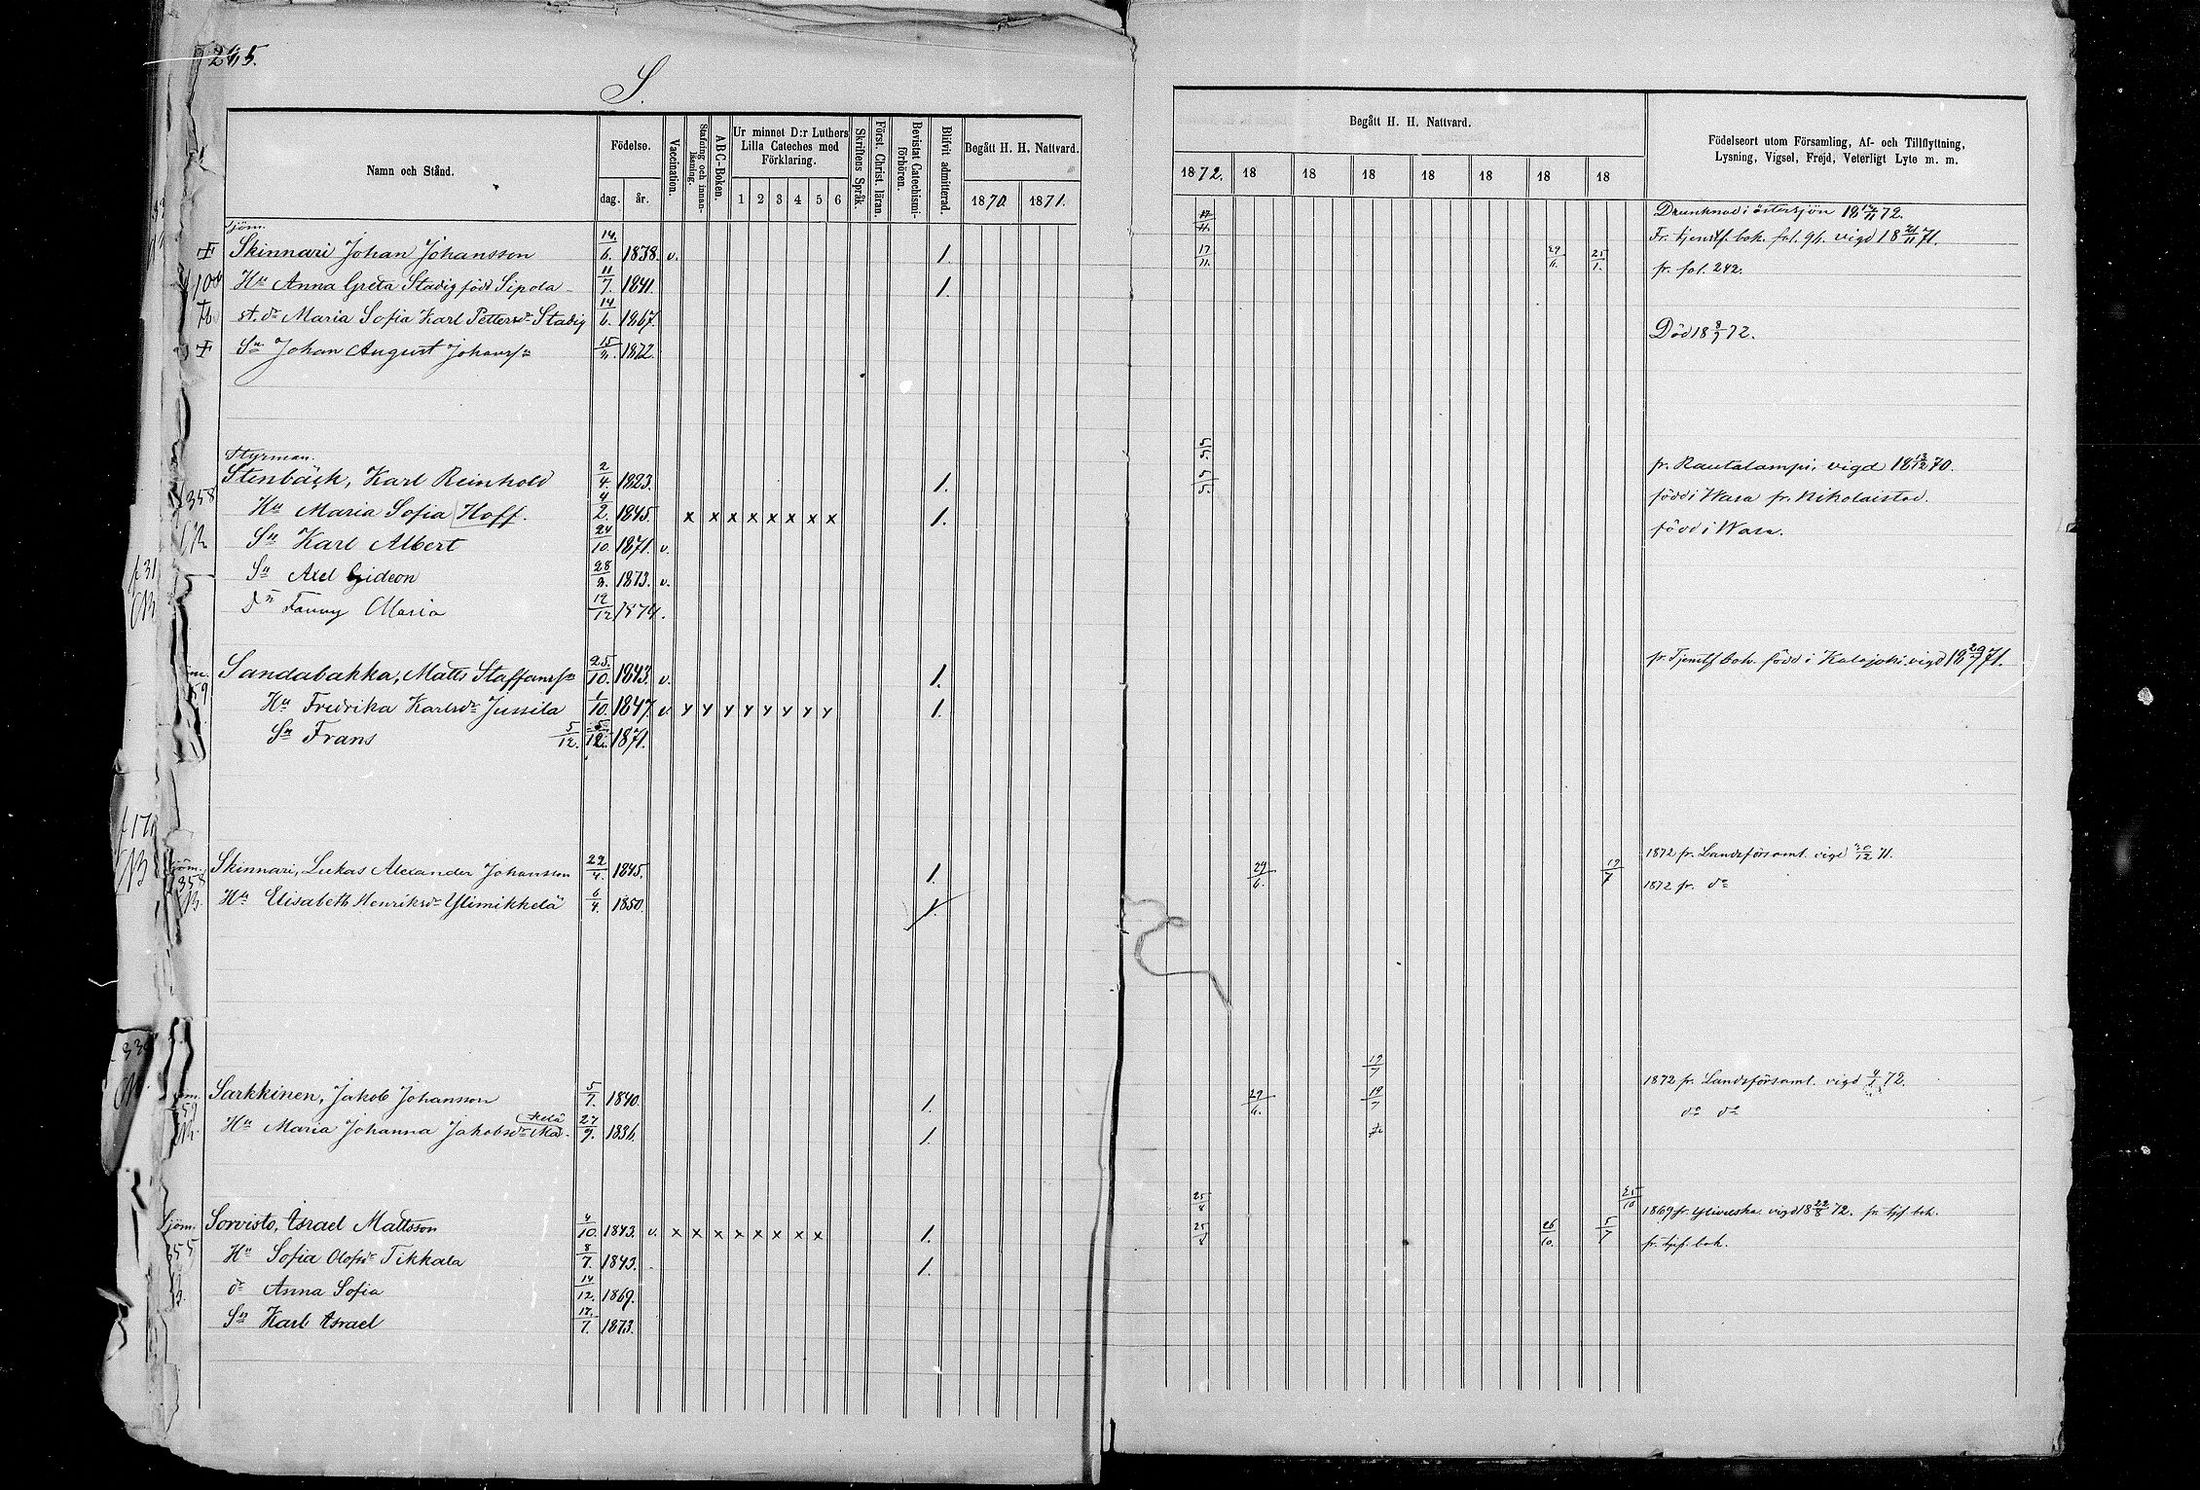 245.
S.
Namn och Stånd.
Födelse.
dag.
år.
Vaccination.
Stafning och innanläsning.
A B C-Boken.
Ur minnet D:r Luthers Lilla Cateches med Förklaring.
1 2 3 4 5 6
Skriftens Språk.
Först. Christ. läran.
Bevistat Catechismiförhören.
Blifvit admitterad.
Begått H. H. Nattvard.
1870. 1871.
Begått H. H. Nattvard.
1872. 18 18 18 18 18 18 18
Födelseort utom Församling, Af- och Tillflyttning,
Lysning, Vigsel, Frejd, Veterligt Lyte m. m.
Sjöm. Drunknad i östersjön 18 14/11 72.
Skinnari Johan Johansson 14/6. 1838. v. 1. Fr. tjenstf. bok. fol. 96. vigd 18 21/11 71.
Hu Anna Greta Stadig född Sipola 11/7. 1841. 1. fr. fol. 242.
st. dr Maria Sofia Karl Pettersdr Stadig 14/6. 1867.
Sn Johan August Johanss 15/3. 1872. Död 18 8/7 72.
Styrman.
Stenbäck, Karl Reinhold 2/4. 1823. 1. fr. Rautalampi, vigd 18 13/12 70.
358 Hu Maria Sofia Hoff. 4/2. 1845. x x x x x x x x 1. född i Wasa fr. Nikolaistad.
Sn Karl Albert 24/10. 1871. v. född i Wasa.
Sn Axel Gideon 28/3. 1873. v.
dr Fanny Maria 12/12 1874.
Sandabakka, Matts Staffanss 25/10. 1843. v. 1. fr. Tjenstf. bok. född i Kalajoki vigd 18 29/7 71.
Hu Fredrika Karlsdr Jussila 1/10. 1847. v. x x x x x x x x 1.
Sn Frans 5/12. 5/12. 1871.
Sjöm. Skinnari, Lukas Alexander Johansson 22/4. 1845. 1. 29/6. 19/7 1872 fr. Landsförsaml. vigd 30/12 71.
358 Hu Elisabeth Henriksdr Ylimikkelä 6/4. 1850. 1. 1872 fr. do
Sarkkinen, Jakob Johansson 5/7. 1840. 1. 29/6. 19/7 1872 fr. Landsförsaml. vigd 72.
Hu Maria Johanna Jakobsdr 27/9. 1836. 1. do do
Sjöm. Sorvisto, Israel Mattsson 4/10. 1843. v. x x x x x x x x 1. 25/8 26/10. 5/7 25/10 1869 fr. Ylivieska. vigd 18 22/8 72. fr. tjf. bok.
355 Hu Sofia Olofsdr Tikkala 8/7. 1843. 1. fr. tjf. bok.
dr Anna Sofia 14/12. 1869.
Sn Karl Israel 17/7. 1873.